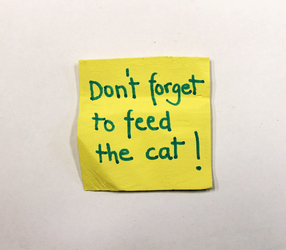 Don't forget
to feed
the cat!